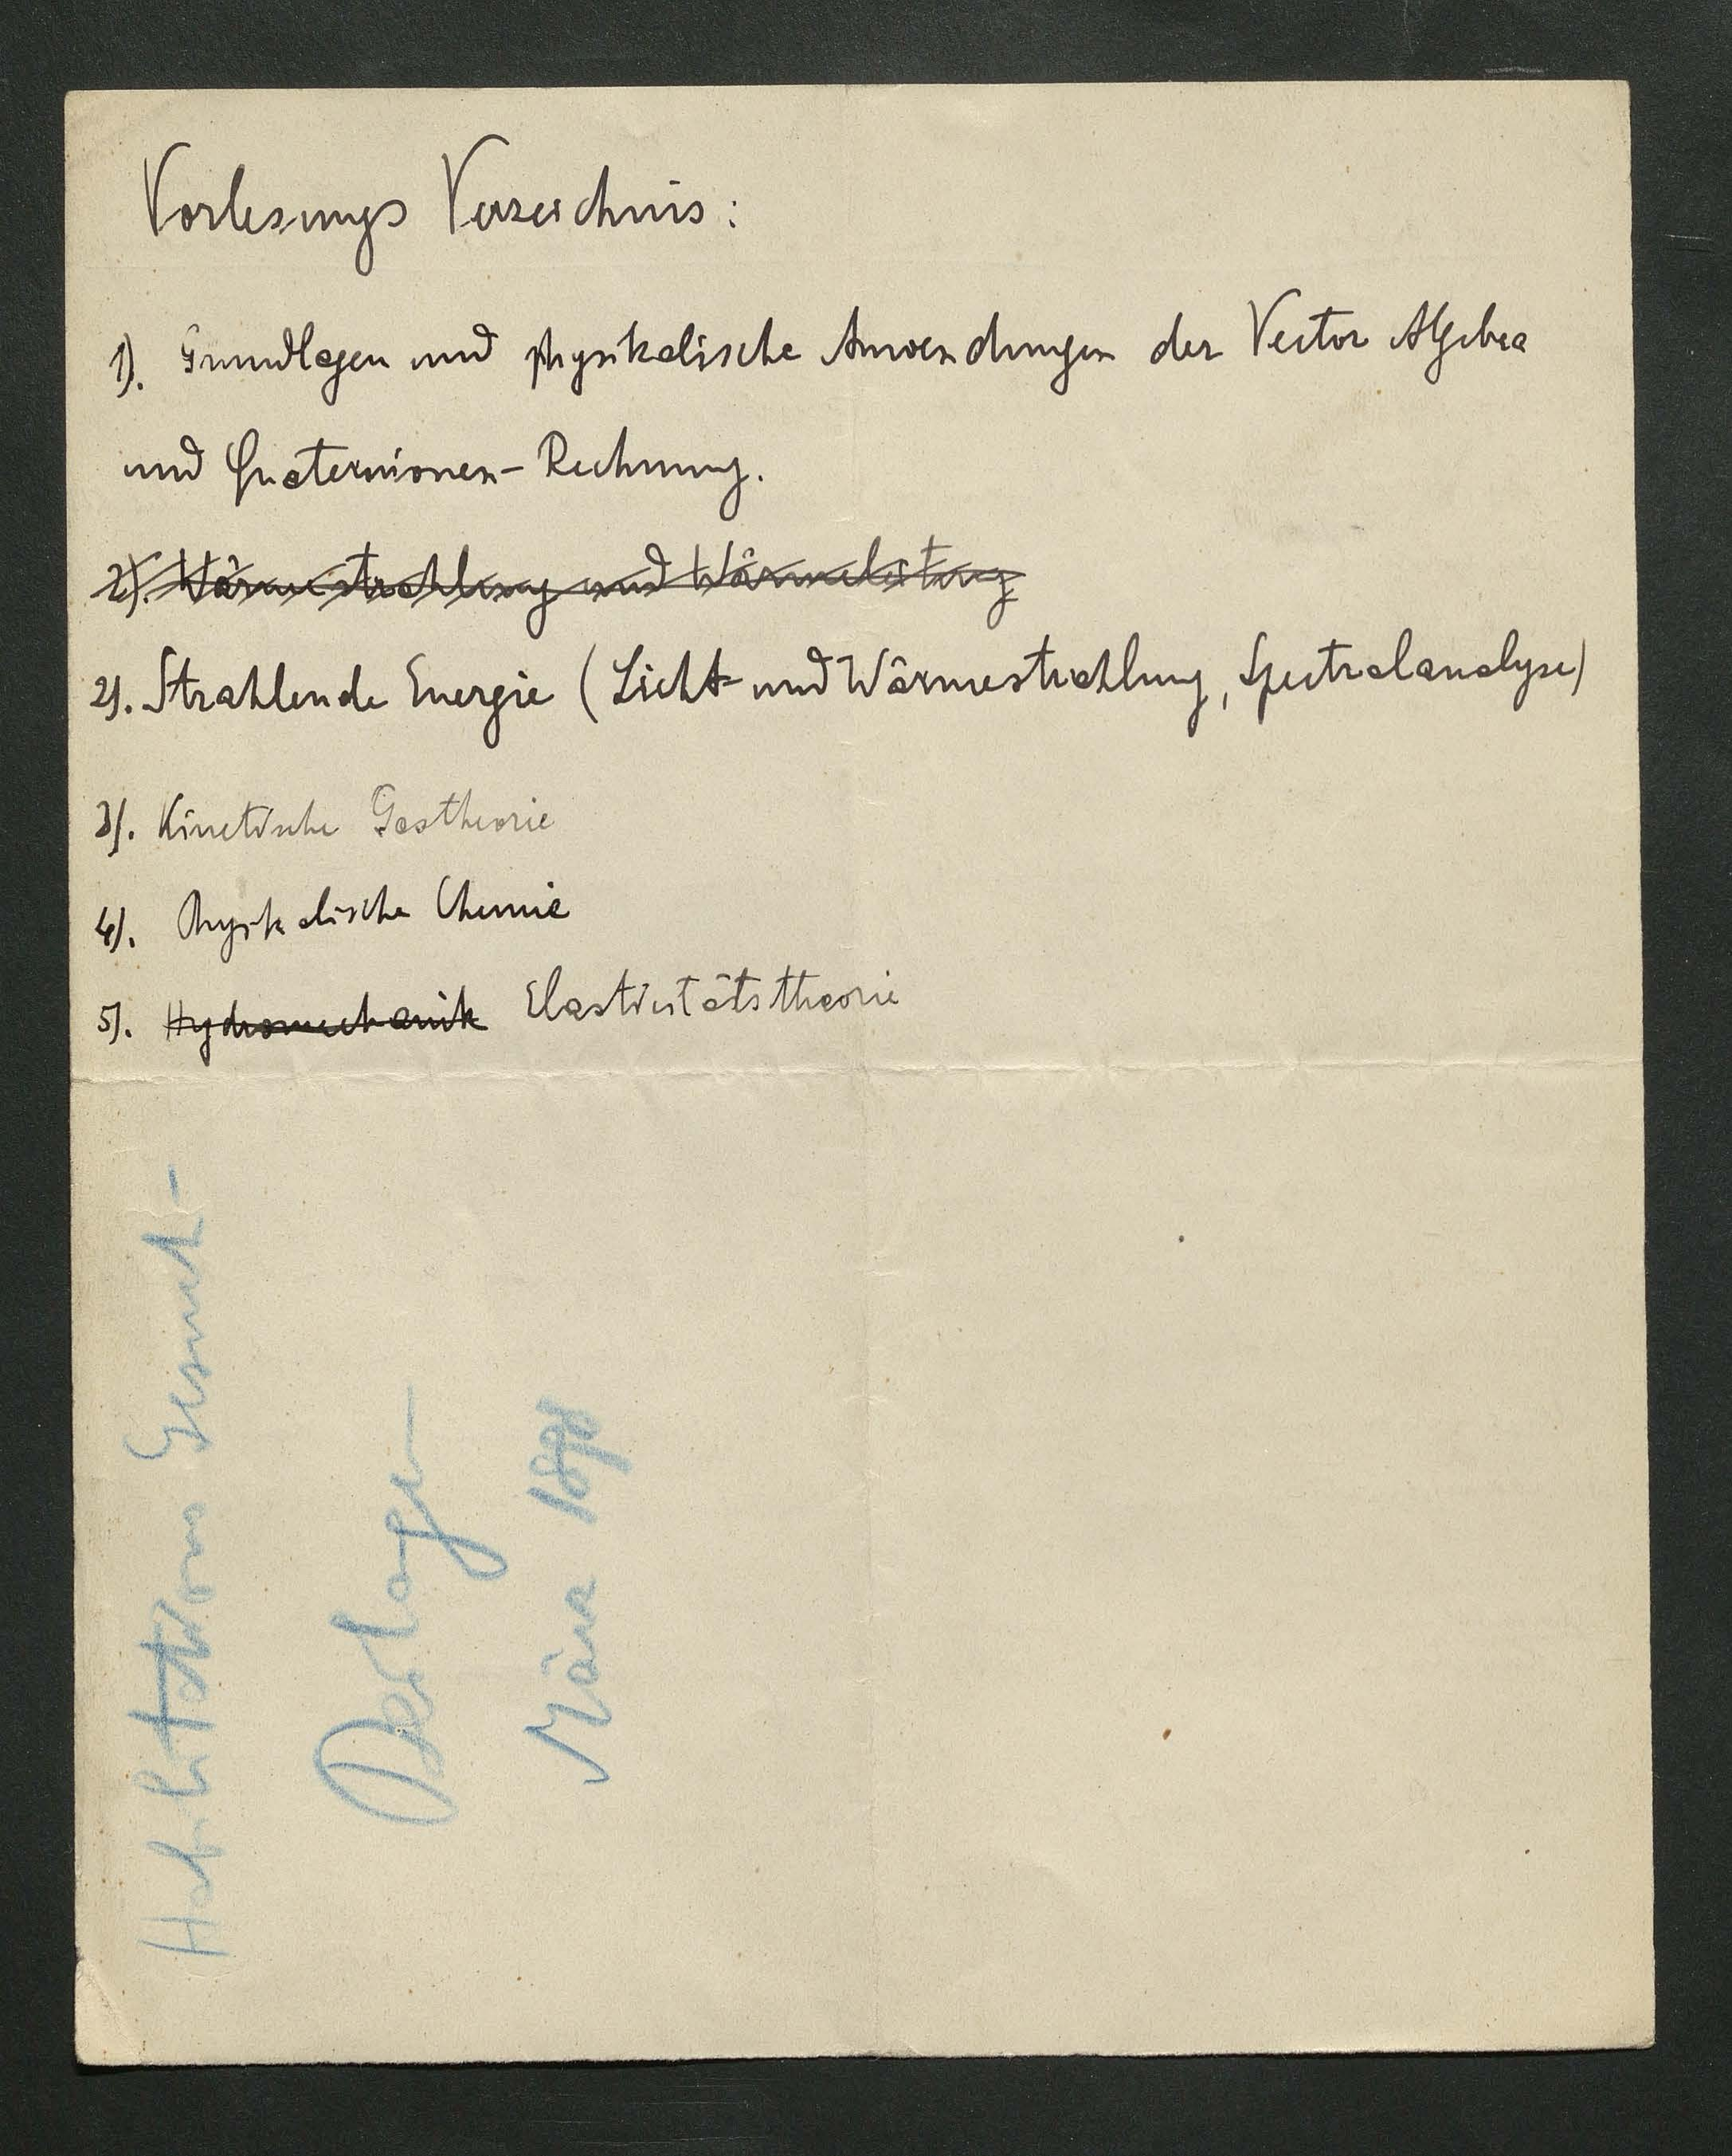 Vorlesungs Verzeichnis:
1). Grundlagen und physikalische Anwendungen der Vector Algebra
und Quaternionen-Rechnung.
2). Wärmestrahlung und Wärmeleitung
2). Strahlende Energie (Licht- und Wärmestrahlung, Spectralanalyse)
3). Kinetische Gastheorie
4). Physikalische Chemie
5). Hydromechanik Elasticitätstheorie
Habilitations Gesuch-
Beilage
März 1898